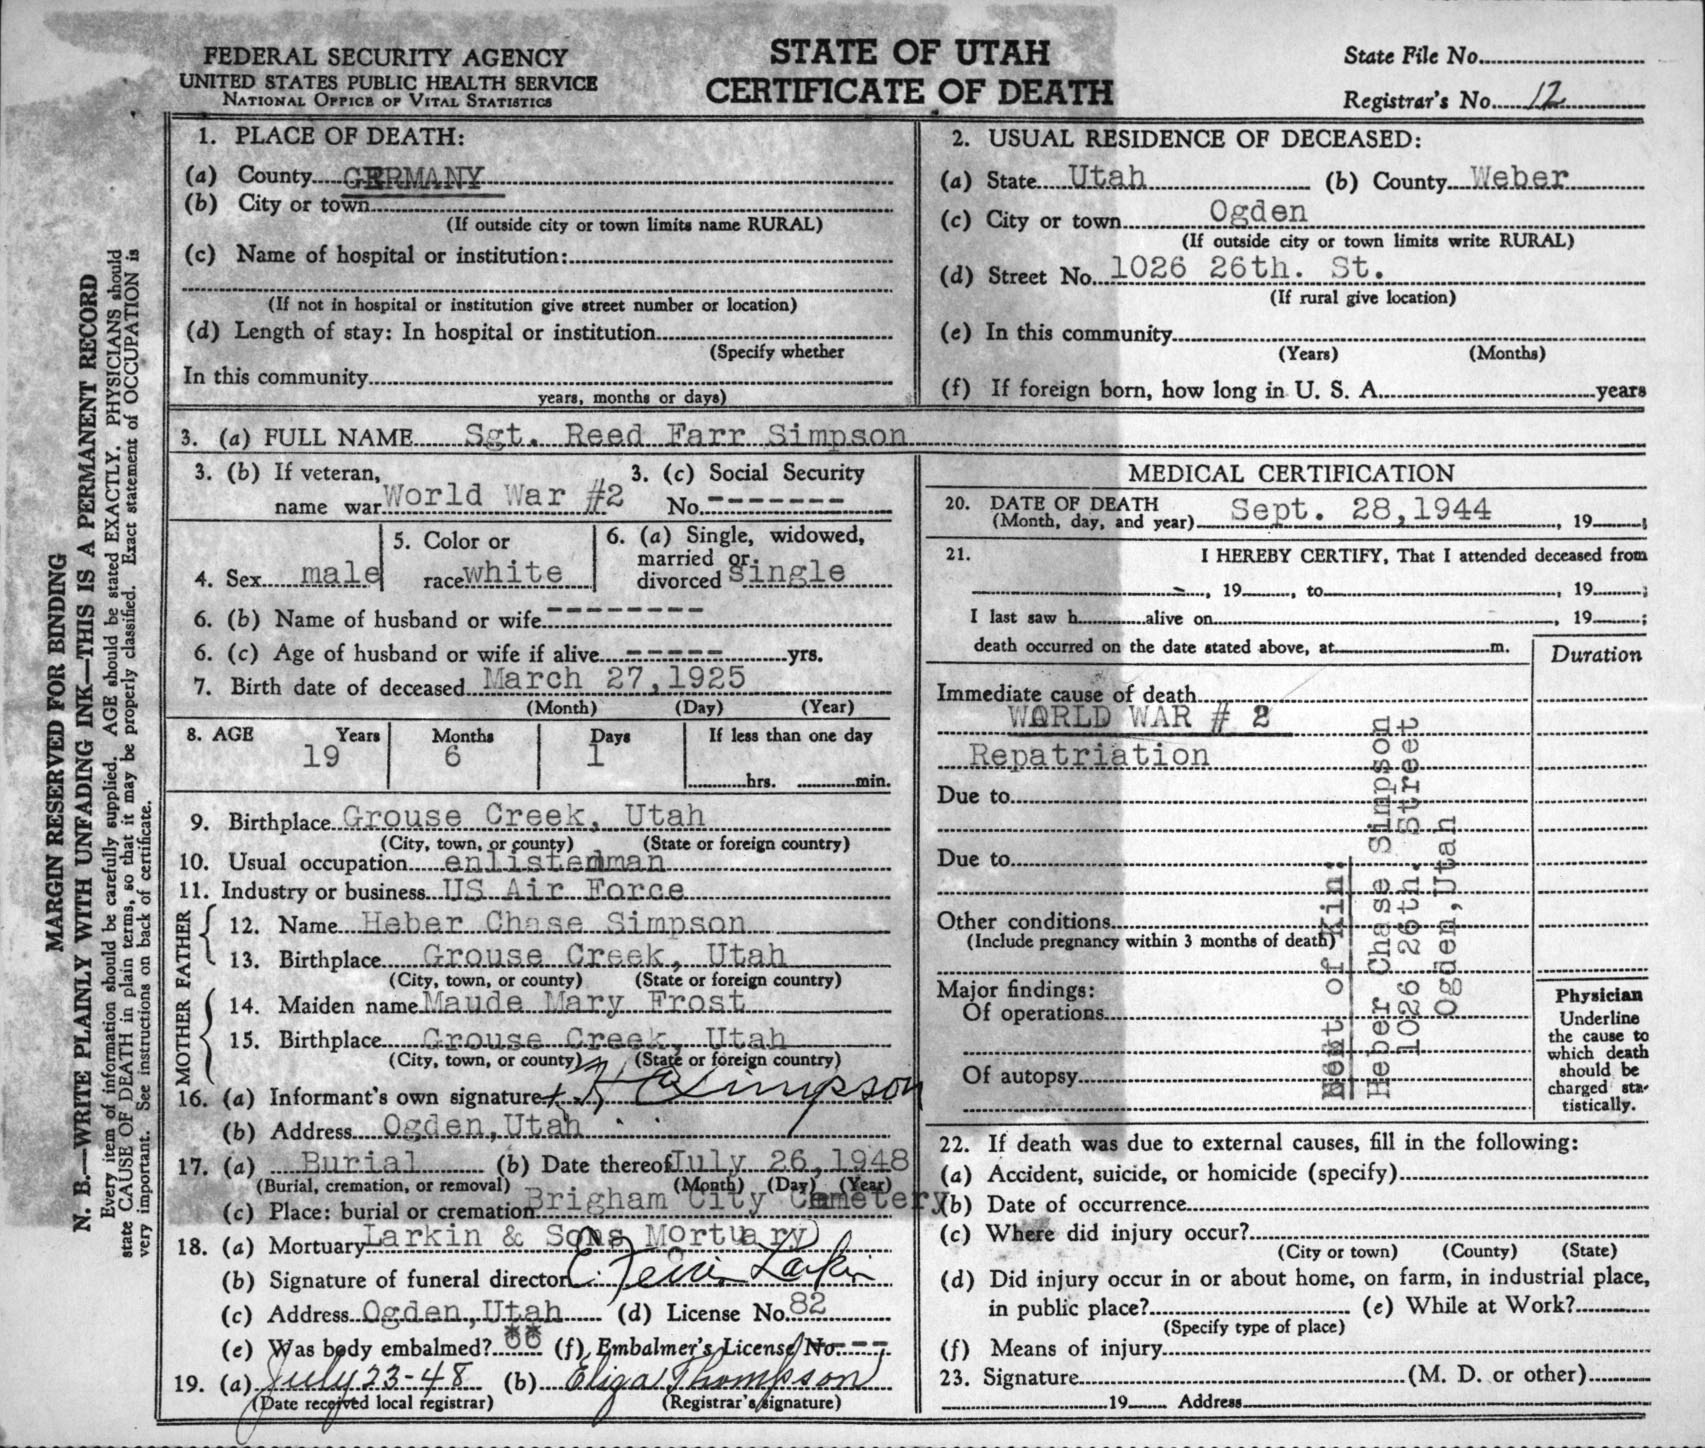 FEDERAL SECURITY AGENCY
UNITED STATES PUBLIC HEALTH SERVICE
NATIONAL OFFICE OF VITAL STATISTICS
STATE OF UTAH
CERTIFICATE OF DEATH
State File No.
Registrar's No. 12
MARGIN RESERVED FOR BINDING
N. B.—WRITE PLAINLY WITH UNFADING INK—THIS IS A PERMANENT RECORD
Every item of information should be carefully supplied. AGE should be stated EXACTLY. PHYSICIANS should
state CAUSE OF DEATH in plain terms, so that it may be properly classified. Exact statement of OCCUPATION is
very important. See instructions on back of certificate.
1. PLACE OF DEATH:
(a) County GERMANY
(b) City or town
(If outside city or town limits name RURAL)
(c) Name of hospital or institution:
(If not in hospital or institution give street number or location)
(d) Length of stay: In hospital or institution
(Specify whether
In this community
years, months or days)
2. USUAL RESIDENCE OF DECEASED:
(a) State Utah (b) County Weber
(c) City or town Ogden
(If outside city or town limits write RURAL)
(d) Street No. 1026 26th. St.
(If rural give location)
(e) In this community
(Years) (Months)
(f) If foreign born, how long in U. S. A. years
3. (a) FULL NAME Sgt. Reed Farr Simpson
3. (b) If veteran, name war World War #2
3. (c) Social Security No. -------
4. Sex male
5. Color or race white
6. (a) Single, widowed, married or divorced single
6. (b) Name of husband or wife --------
6. (c) Age of husband or wife if alive ----- yrs.
7. Birth date of deceased March 27,1925
(Month) (Day) (Year)
8. AGE Years Months Days If less than one day
19 6 1 hrs. min.
9. Birthplace Grouse Creek, Utah
(City, town, or county) (State or foreign country)
10. Usual occupation enlistedman
11. Industry or business US Air Force
FATHER
12. Name Heber Chase Simpson
13. Birthplace Grouse Creek, Utah
(City, town, or county) (State or foreign country)
MOTHER
14. Maiden name Maude Mary Frost
15. Birthplace Grouse Creek, Utah
(City, town, or county) (State or foreign country)
16. (a) Informant's own signature x H C Simpson
(b) Address Ogden,Utah
17. (a) Burial (b) Date thereof July 26,1948
(Burial, cremation, or removal) (Month) (Day) (Year)
(c) Place: burial or cremation Brigham City Cemetery
18. (a) Mortuary Larkin & Sons Mortuary
(b) Signature of funeral director Larkin
(c) Address Ogden,Utah (d) License No. 82
(e) Was body embalmed? ** (f) Embalmer's License No. ---
19. (a) July 23-48 (b) Eliza Thompson
(Date received local registrar) (Registrar's signature)
MEDICAL CERTIFICATION
20. DATE OF DEATH
(Month, day, and year) Sept. 28,1944, 19 ;
21. I HEREBY CERTIFY, That I attended deceased from
, 19 , to , 19 ;
I last saw h alive on , 19 ;
death occurred on the date stated above, at m.
Duration
Immediate cause of death
WORLD WAR # 2
Repatriation
Due to
Due to
Other conditions
(Include pregnancy within 3 months of death)
Major findings:
Of operations
Of autopsy
Next of Kin:
Heber Chase Simpson
1026 26th. Street
Ogden,Utah
Physician
Underline
the cause to
which death
should be
charged sta-
tistically.
22. If death was due to external causes, fill in the following:
(a) Accident, suicide, or homicide (specify)
(b) Date of occurrence
(c) Where did injury occur?
(City or town) (County) (State)
(d) Did injury occur in or about home, on farm, in industrial place,
in public place? (e) While at Work?
(Specify type of place)
(f) Means of injury
23. Signature (M. D. or other)
19 Address